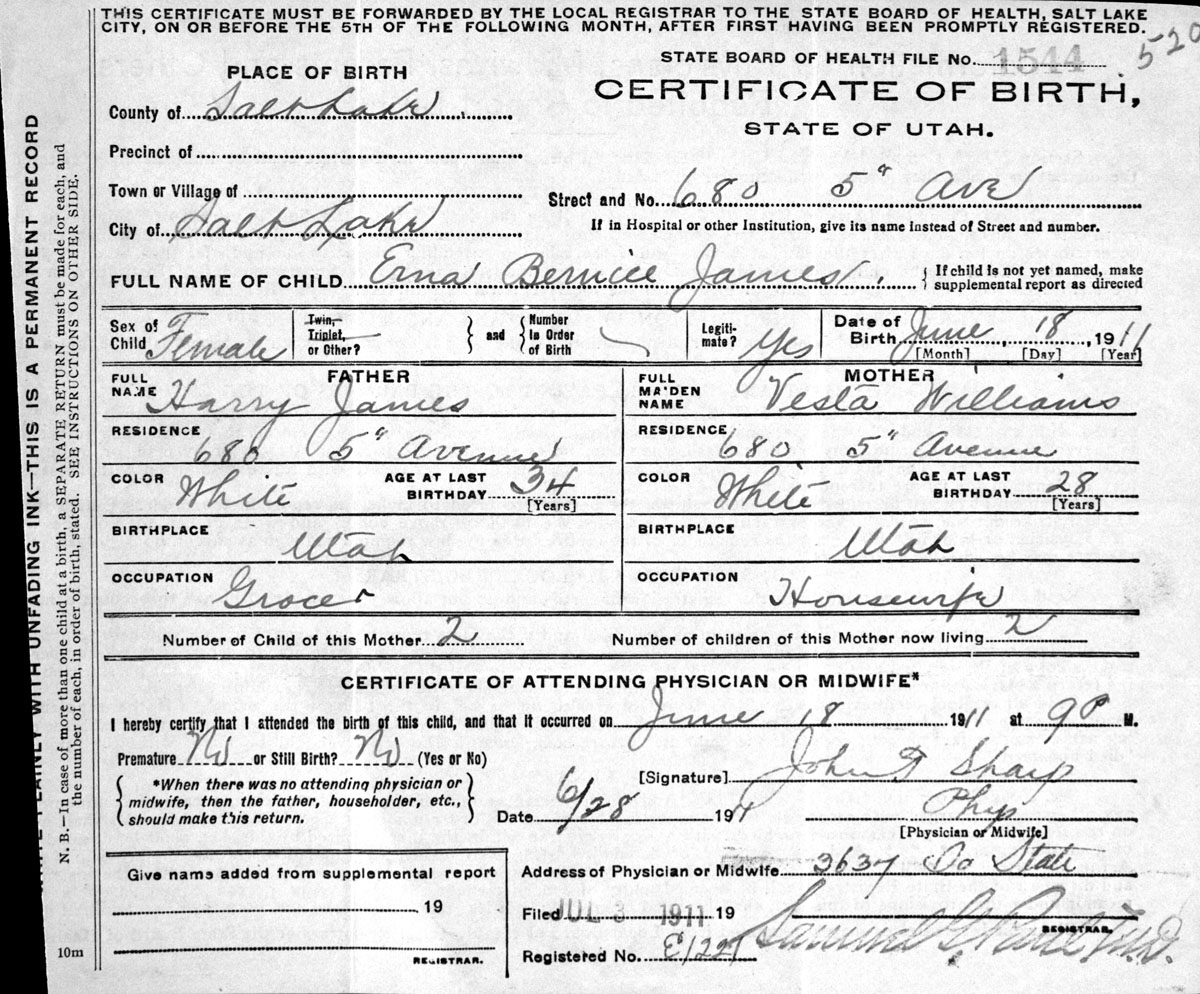 THIS CERTIFICATE MUST BE FORWARDED BY THE LOCAL REGISTRAR TO THE STATE BOARD OF HEALTH, SALT LAKE
CITY, ON OR BEFORE THE 5TH OF THE FOLLOWING MONTH, AFTER FIRST HAVING BEEN PROMPTLY REGISTERED.
5-20
STATE BOARD OF HEALTH FILE No. 1544
PLACE OF BIRTH
CERTIFICATE OF BIRTH,
STATE OF UTAH.
County of Salt Lake
Precinct of
Town or Village of
Street and No. 680 5" Ave
City of Salt Lake
If in Hospital or other Institution, give its name instead of Street and number.
FULL NAME OF CHILD Erna Bernice James
If child is not yet named, make
supplemental report as directed
Sex of Child Female
Twin, Triplet, or Other?
and
Number in Order of Birth
Legitimate? Yes
Date of Birth June 18, 1911
[Month] [Day] [Year]
FATHER
FULL NAME Harry James
RESIDENCE 680 5" Avenue
COLOR White
AGE AT LAST BIRTHDAY 34
[Years]
BIRTHPLACE Utah
OCCUPATION Grocer
MOTHER
FULL MAIDEN NAME Vesta Williams
RESIDENCE 680 5" Avenue
COLOR White
AGE AT LAST BIRTHDAY 28
[Years]
BIRTHPLACE Utah
OCCUPATION Housewife
Number of Child of this Mother 2
Number of children of this Mother now living 2
CERTIFICATE OF ATTENDING PHYSICIAN OR MIDWIFE*
I hereby certify that I attended the birth of this child, and that it occurred on June 18 1911 at 9 P M.
Premature No or Still Birth? No (Yes or No)
*When there was no attending physician or
midwife, then the father, householder, etc.,
should make this return.
[Signature] John F Sharp
Date 6/28 191
Phys
[Physician or Midwife]
Address of Physician or Midwife 3637 So State
Give name added from supplemental report
19
REGISTRAR.
Filed JUL 3 1911 19
REGISTRAR.
Registered No. E1227
10m
WRITE PLAINLY WITH UNFADING INK—THIS IS A PERMANENT RECORD
N. B.—In case of more than one child at a birth, a SEPARATE RETURN must be made for each, and
the number of each, in order of birth, stated. SEE INSTRUCTIONS ON OTHER SIDE.